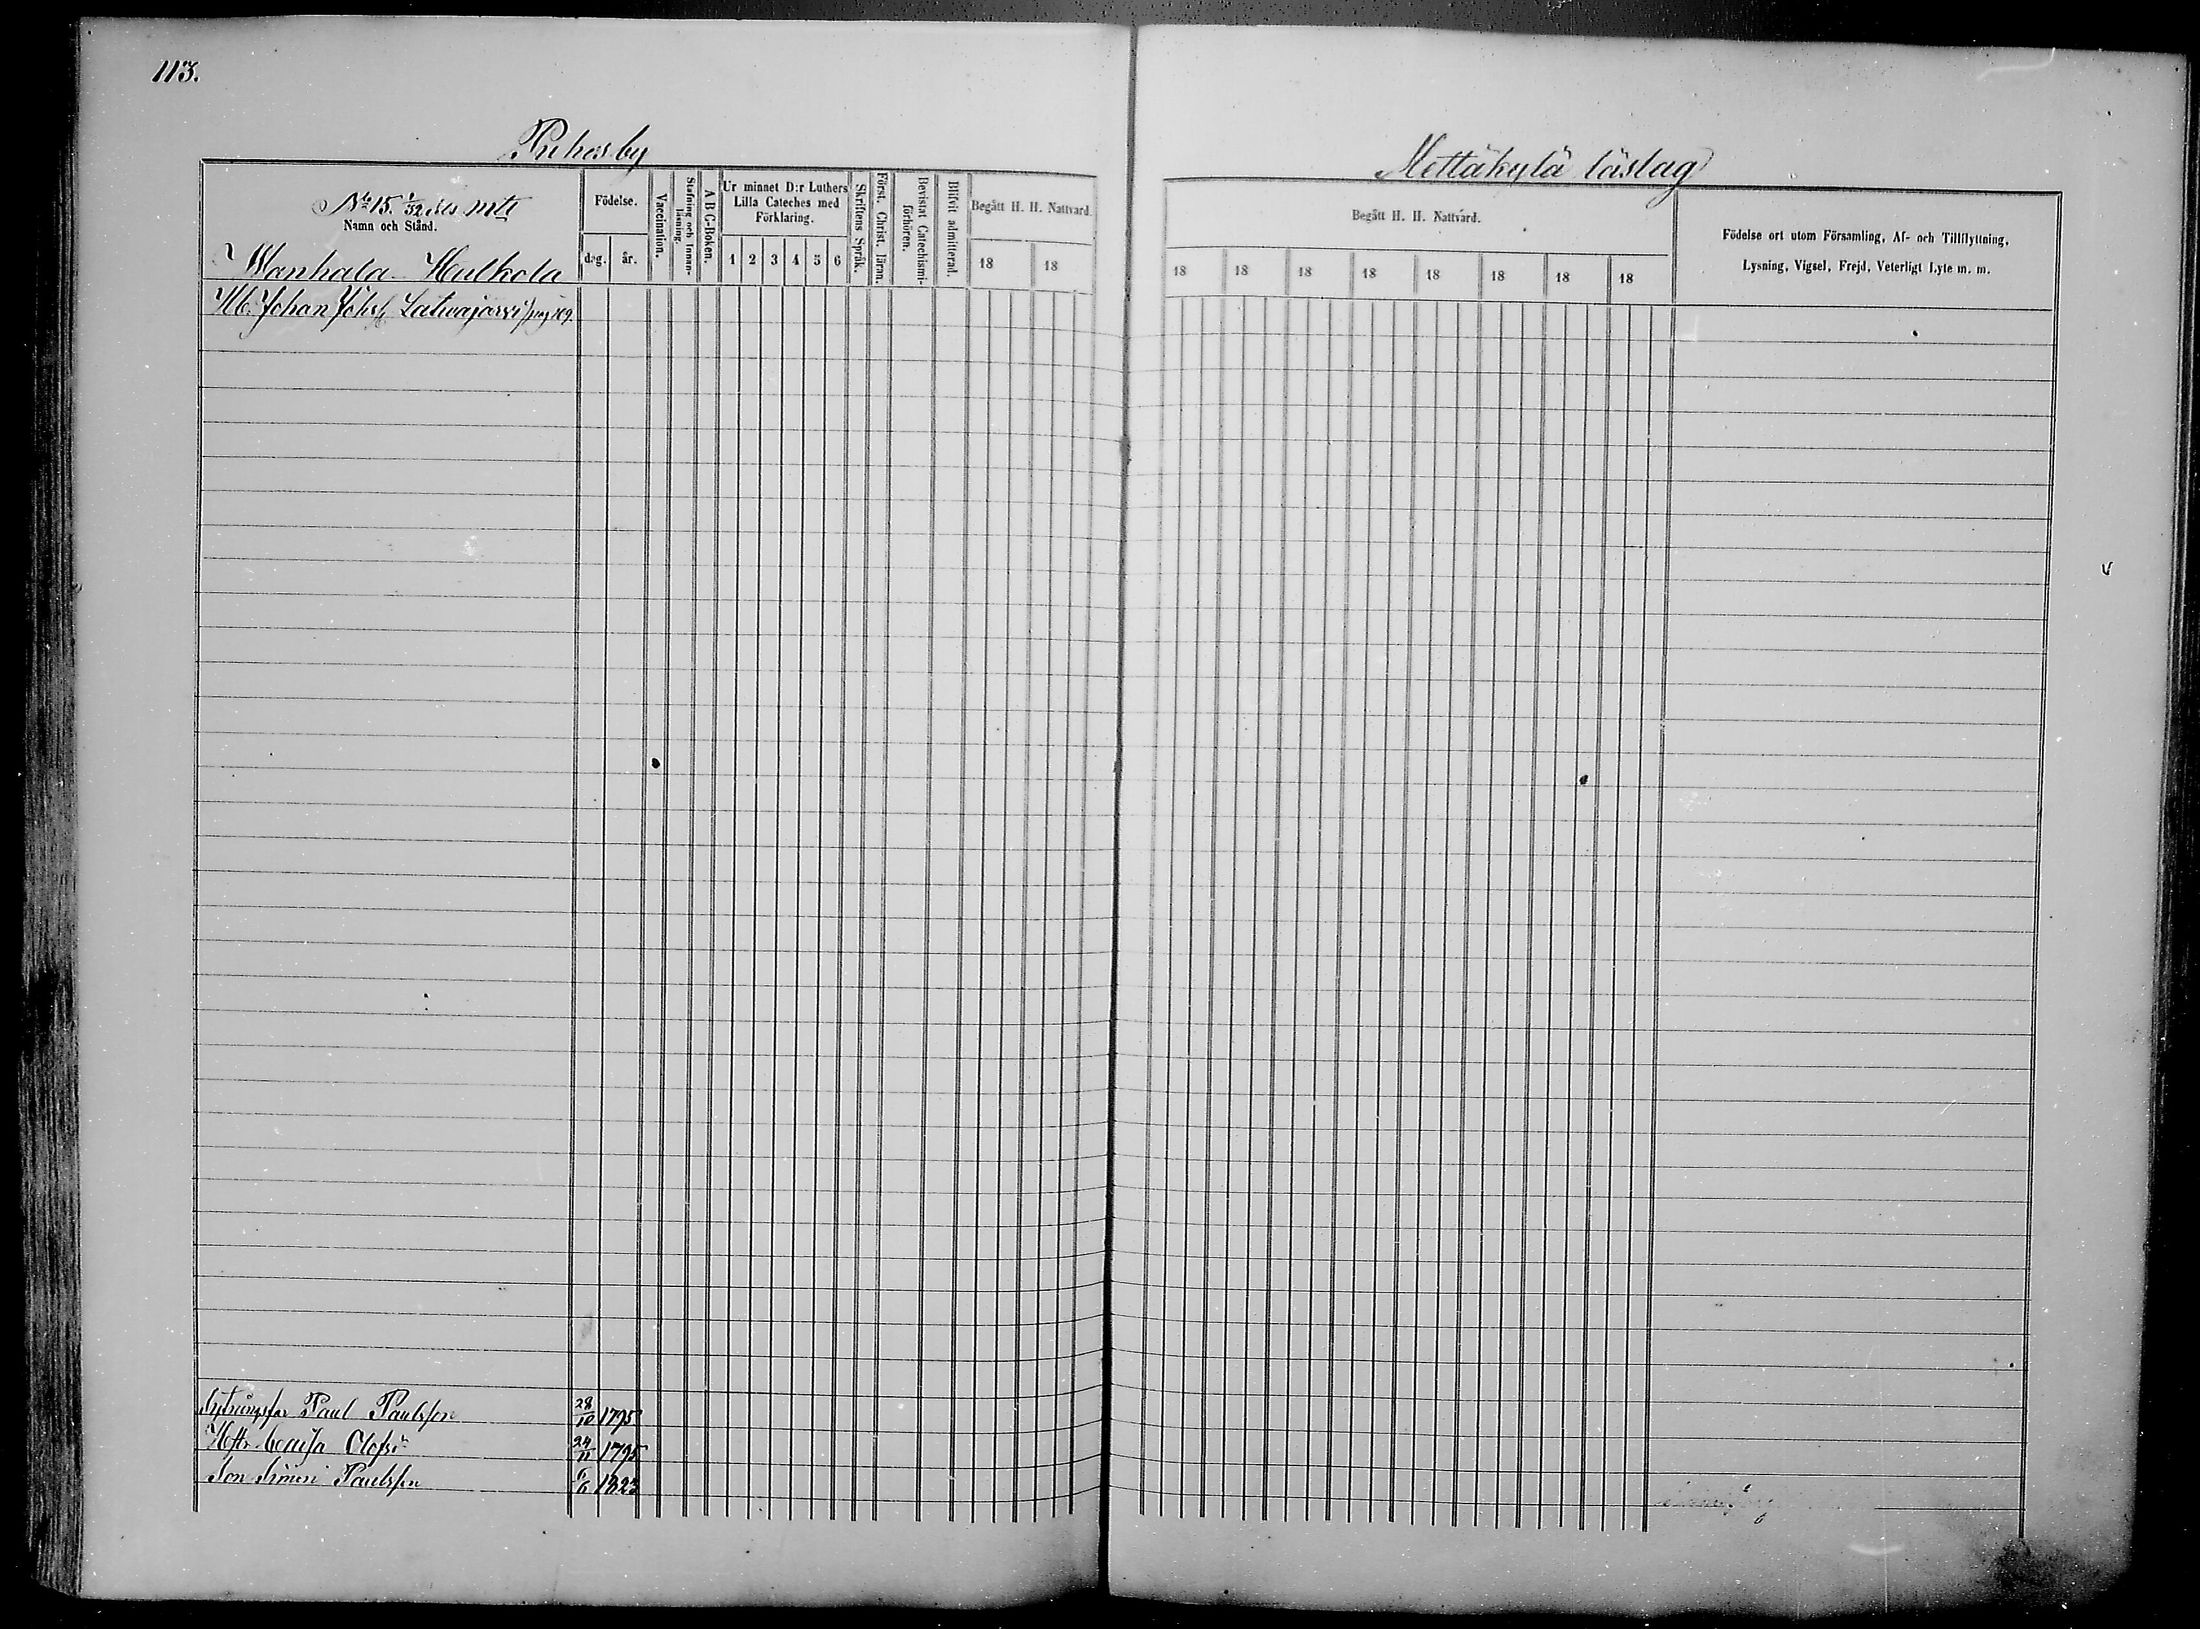 113.
Puhos by
Mettäkylä läslag
No 15. 1/32 dels mtl
Namn och Stånd.
Wanhala Hulkola
Födelse.
dag. år.
Vaccination.
Stafning och Innan-läsning.
A B C-Boken.
Ur minnet D:r Luthers Lilla Cateches med Förklaring.
1 2 3 4 5 6
Skriftens Språk.
Först. Christ. läran.
Bevistat Catechismi-förhören.
Blifvit admitterad.
Begått H. H. Nattvard.
18 18
Begått H. H. Nattvard.
18 18 18 18 18 18 18 18
Födelse ort utom Församling, Af- och Tillflyttning,
Lysning, Vigsel, Frejd, Veterligt Lyte m. m.
Johan Latwajärvi pag 109
Paul Paulsson 28/10 1795
Hstr Caisa Olofsd:r 24/11 1795
Son Simon Paulsson 6/6 1823